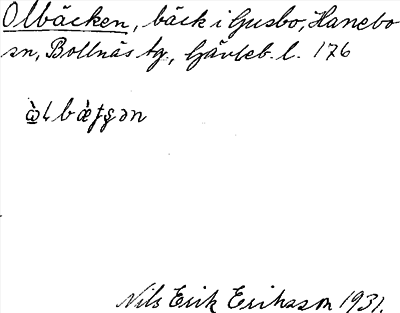 Olbäcken, bäck i Gusbo, Hanebo
sn, Bollnäs tg, Gävleb. l. 176
Nils Erik Eriksson 1931.